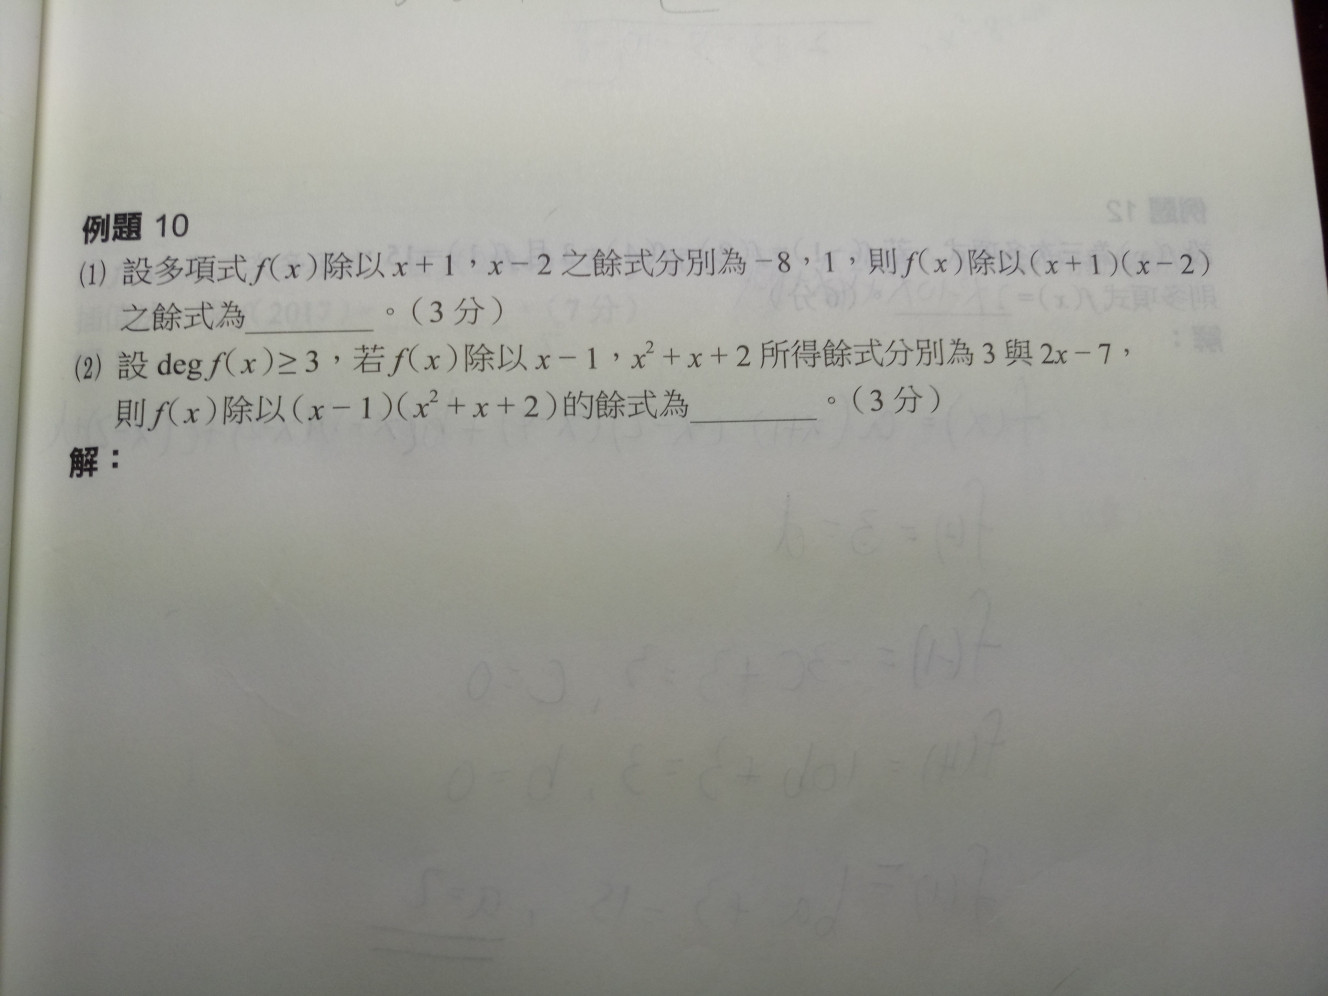 例題 10
⑴ 設多項式 f(x)除以 x+1，x-2 之餘式分別為 -8，1，則 f(x)除以(x+1)(x-2)
之餘式為________。(3 分)
⑵ 設 deg f(x)≥3，若 f(x)除以 x-1，x²+x+2 所得餘式分別為 3 與 2x-7，
則 f(x)除以(x-1)(x²+x+2)的餘式為________。(3 分)
解：